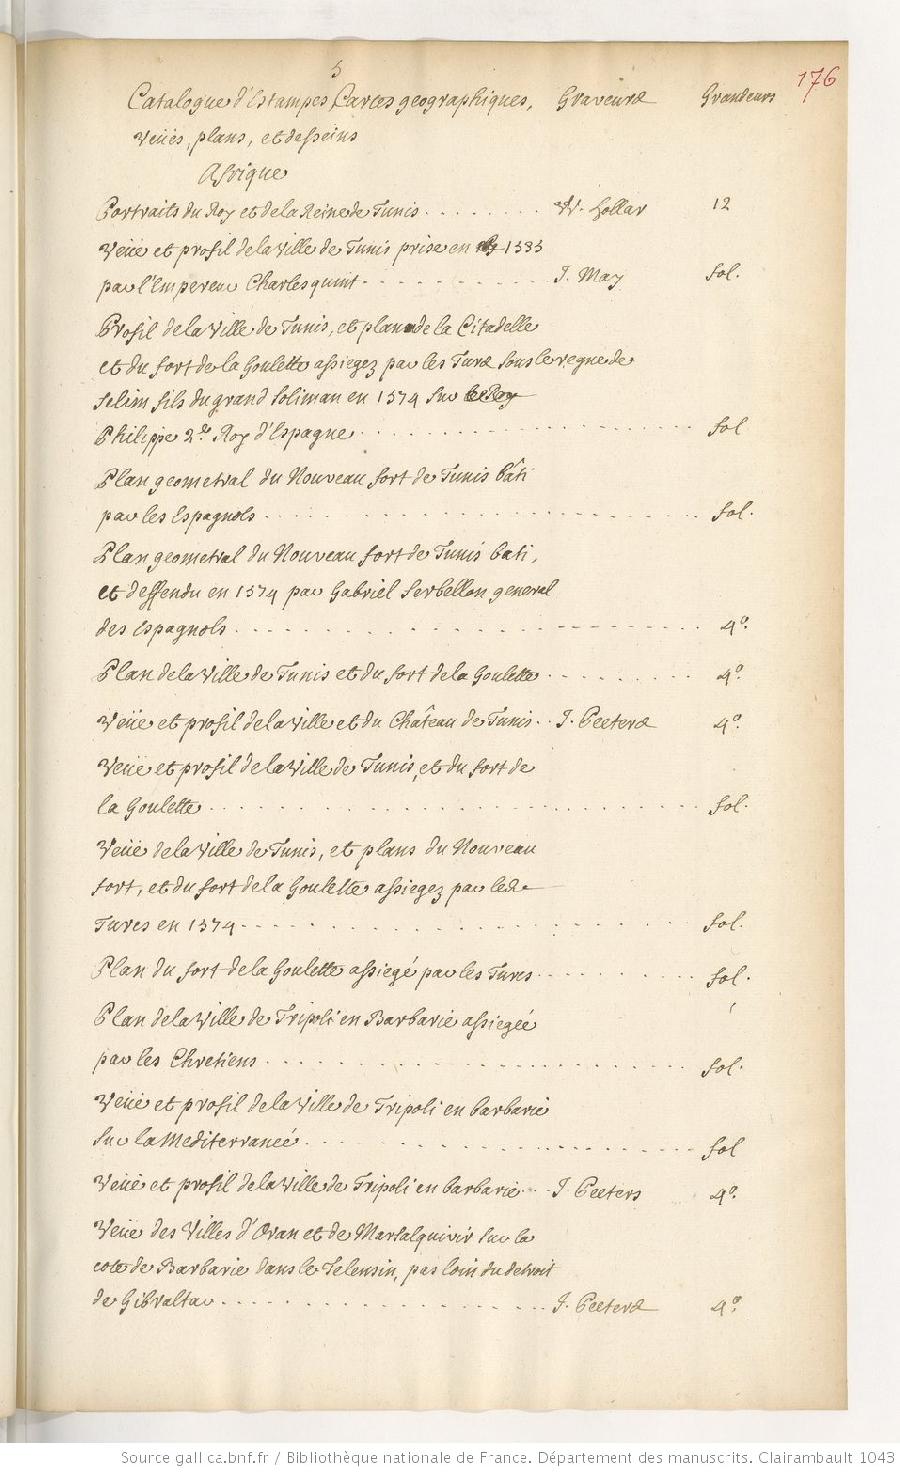 5
176
Catalogue d'Estampes, Cartes geographiques, Graveurs Grandeurs
Veües, plans, et desseins
Afrique
Portraits du Roy et de la Reine de Tunis . . . . . . . . W. Hollar 12
Veüe et profil de la Ville de Tunis prise en 1535
par l'Empereur Charlesquint . . . . . . . . . . . J. May fol.
Profil de la Ville de Tunis, et plan de la Citadelle
et du fort de la Goulette assiegez par les Turcs sous le regne de
Selim fils du grand Soliman en 1574 sur le Roy
Philippe 2.de Roy d'Espagne . . . . . . . . . . . . fol
Plan geometral du Nouveau fort de Tunis bâti
par les Espagnols . . . . . . . . . . . . fol.
Plan geometral du Nouveau fort de Tunis bati,
et deffendu en 1574 par Gabriel Serbellon general
des Espagnols . . . . . . . . . . . . 4.º
Plan de la Ville de Tunis et du fort de la Goulette . . . . . . . . 4.º
Veüe et profil de la Ville et du Château de Tunis . . J. Peeters 4.º
Veüe et profil de la Ville de Tunis, et du fort de
la Goulette . . . . . . . . . . . . fol.
Veüe de la Ville de Tunis, et plans du Nouveau
fort, et du fort de la Goulette assiegez par les
Turcs en 1574 . . . . . . . . . . . . fol.
Plan du fort de la Goulette assiegé par les Turcs . . . . . . . . fol.
Plan de la Ville de Tripoli en Barbarie assiegeé
par les Chretiens . . . . . . . . . . . . fol.
Veüe et profil de la Ville de Tripoli en barbarie
sur la Mediterraneé . . . . . . . . . . . . fol
Veüe et profil de la Ville de Tripoli en barbarie . . J Peeters 4.º
Veüe des Villes d'Oran et de Marsalquivir sur la
cote de Barbarie dans le Telensin, pas loin du detroit
de Gibraltar . . . . . . . . . . . . J. Peeters 4.º
Source gallica.bnf.fr / Bibliothèque nationale de France. Département des manuscrits. Clairambault 1043